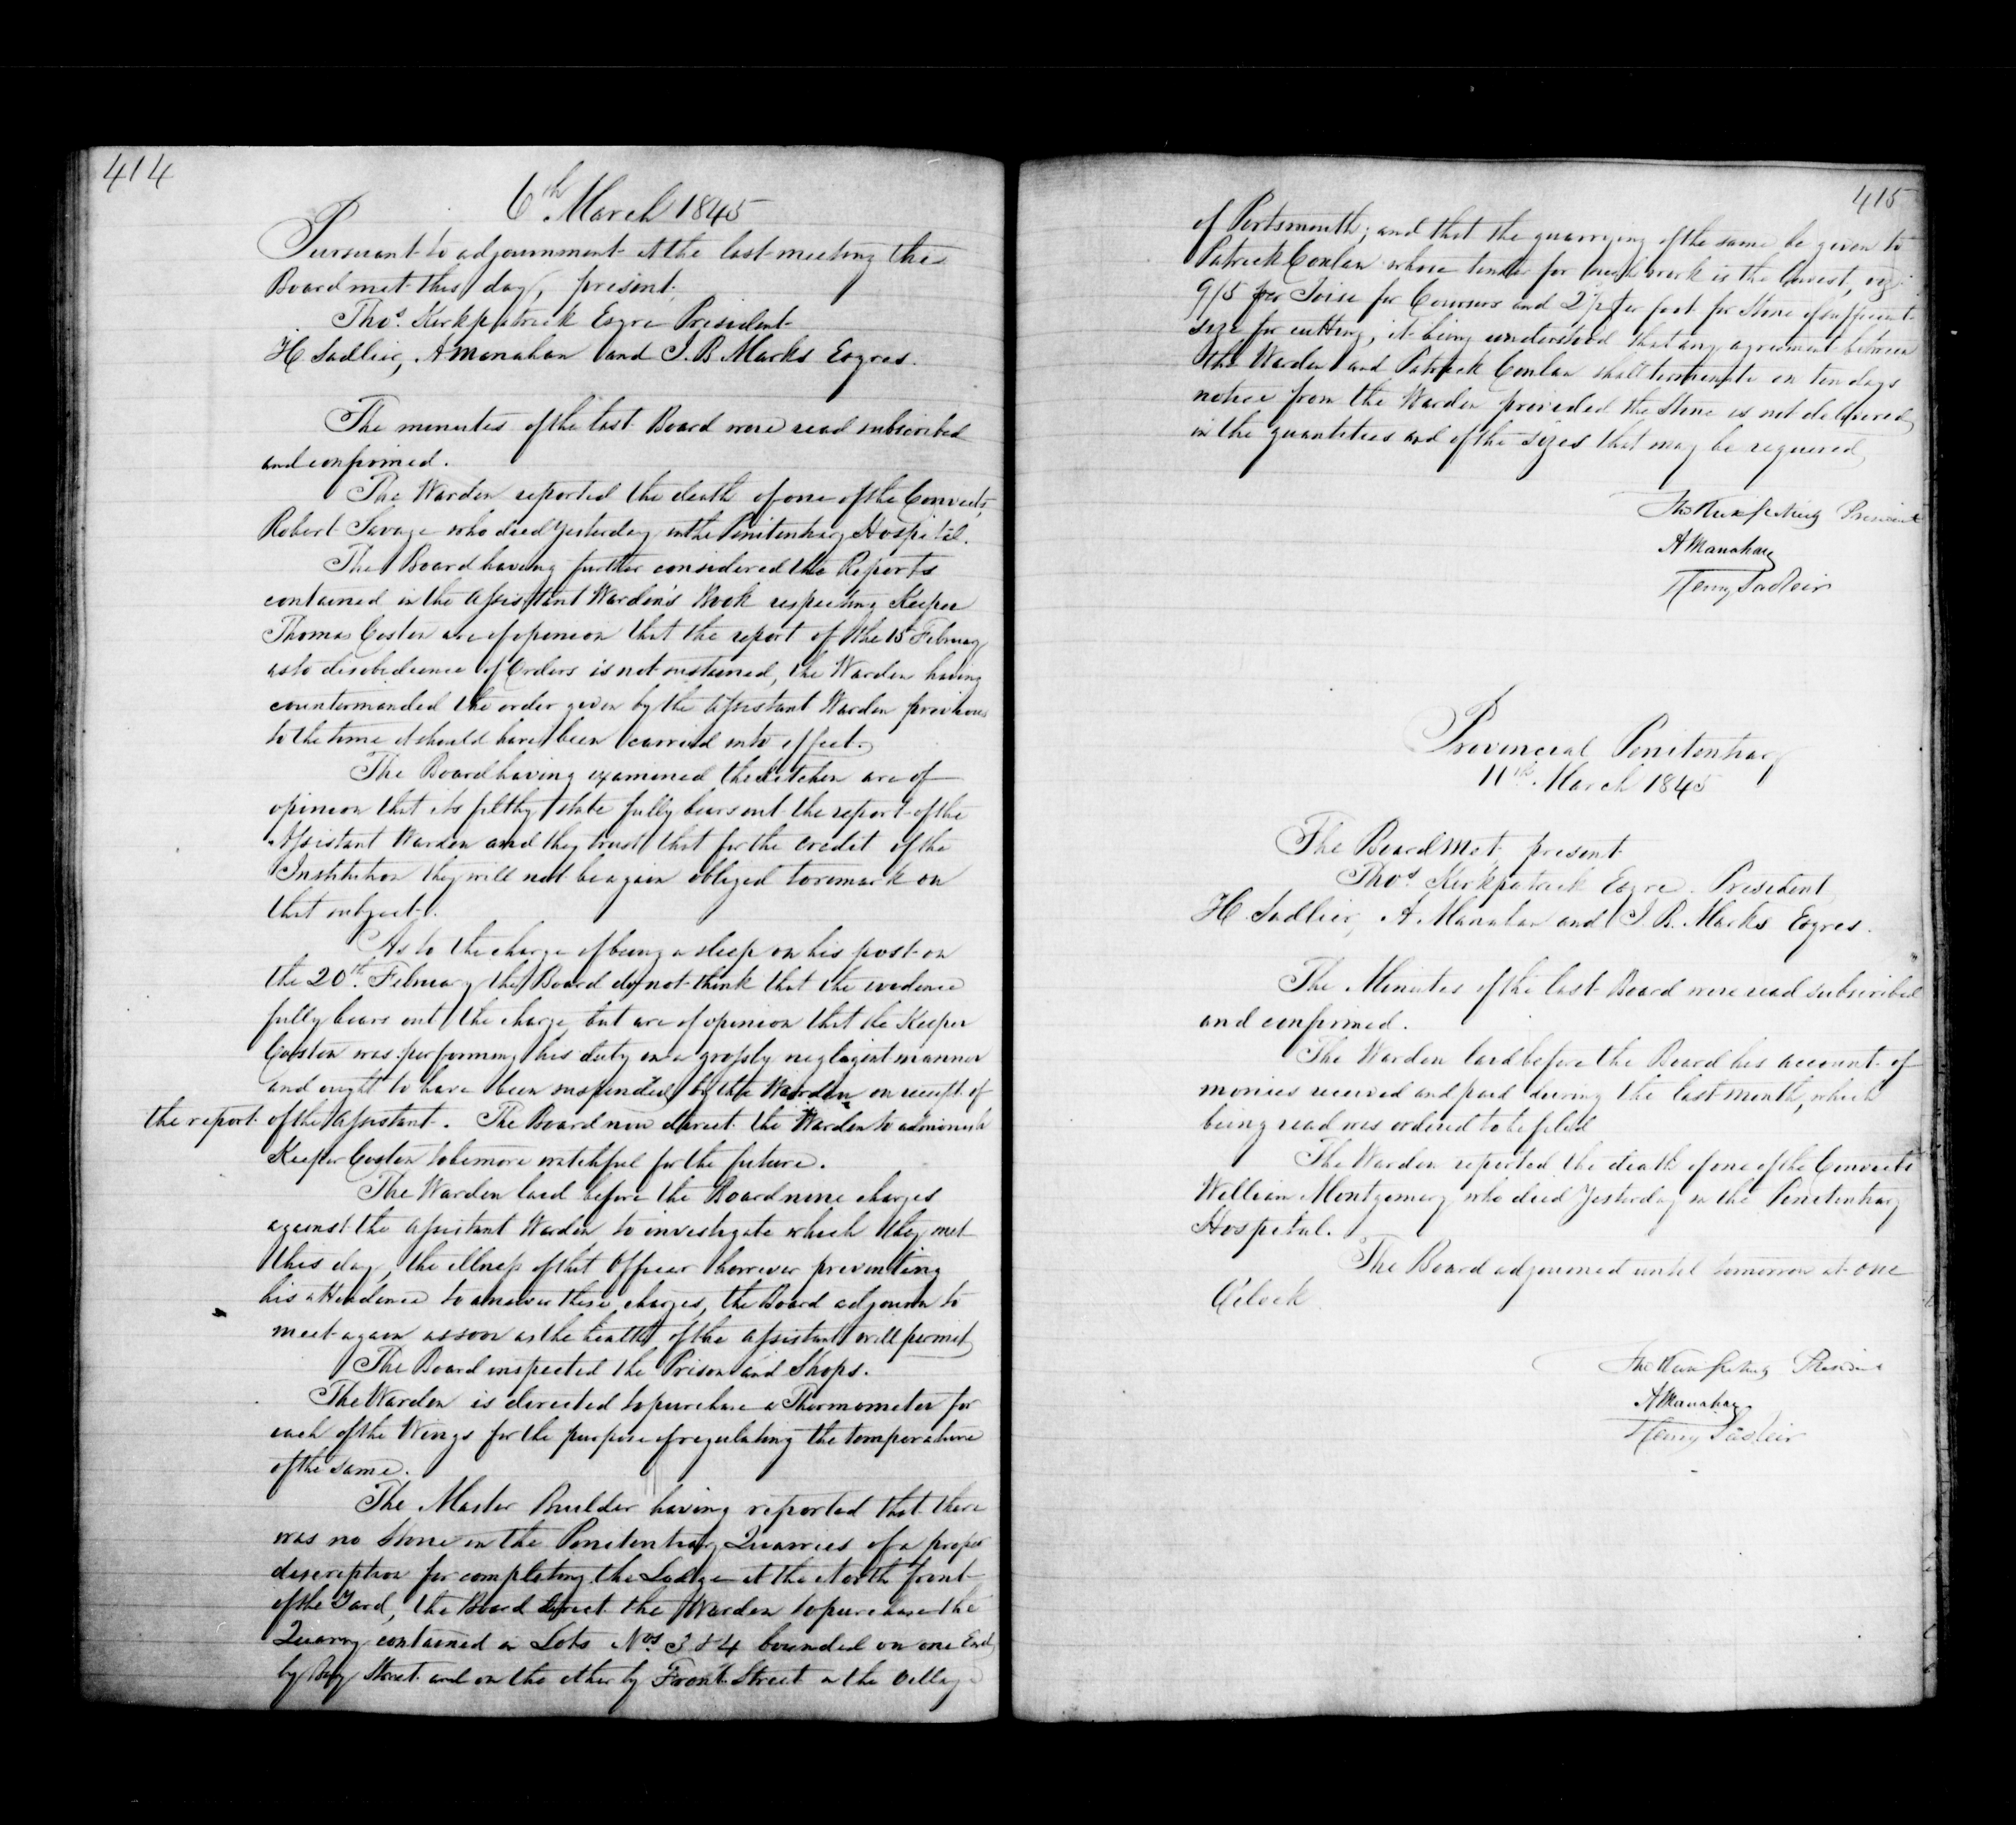 414
6th March 1845
Pursuant to adjournment at the last meeting the
Board met this day, present,
Thos. Kirkpatrick Esqre President
H. Sadlier, A Manahan and J. B. Marks Esqres.
The minutes of the last Board were read subscribed
and confirmed.
The Warden reported the death of one of the Convicts,
Robert Savage who died yesterday in the Penitentiary Hospital.
The Board having further considered the Reports
contained in the Assistant Warden's Book respecting Keeper
Thomas Costen are of opinion that the report of the 15th February
as to disobedience of Orders is not sustained, the Warden having
countermanded the order given by the Assistant Warden previous
to the time it should have been carried into effect.
The Board having examined the kitchen are of
opinion that its filthy state fully bears out the report of the
Assistant Warden and they trust that for the credit of the
Institution they will not be again obliged to remark on
that subject.
As to the charge of being asleep on his post on
the 20th. February the Board do not think that the evidence
fully bears out the charge, but are of opinion that the Keeper
Costen was performing his duty in a grossly negligent manner
and ought to have been suspended by the Warden on receipt of
the report of the Assistant. The Board now direct the Warden to admonish
Keeper Costen to be more watchful for the future.
The Warden laid before the Board nine charges
against the Assistant Warden to investigate which they met
this day, the illness of that Officer however preventing
his attendance to answer these charges, the Board adjourn to
meet again as soon as the health of the Assistant will permit
The Board inspected the Prison and Shops.
The Warden is directed to purchase a Thermometer for
each of the Wings for the purpose of regulating the temperature
of the same.
The Master Builder having reported that there
was no stone in the Penitentiary Quarries of a proper
description for completing the Lodge at the North front
of the Yard, the Board direct the Warden to purchase the
Quarry contained in Lots Nos. 3 & 4 bounded on one End
by Bay Street and on the other by Front Street in the village
415
of Portsmouth; and that the quarrying of the same be given to
Patrick Conlan whose tender for such work is the lowest, viz:
9/5 per Toise for Coursers and 2½ per foot for Stone of sufficient
size for cutting, it being understood that any agreement between
the Warden and Patrick Conlan shall terminate on ten days
notice from the Warden provided the Stone is not delivered
in the quantities and of the sizes that may be required
Thos Kirkpatrick President
A Manahan
Henry Sadleir
Provincial Penitentiary
11th. March 1845
The Board Met, present
Thos. Kirkpatrick Esqre. President
H. Sadlier, A. Manahan and J. B. Marks Esqres.
The Minutes of the last Board were read subscribed
and confirmed.
The Warden laid before the Board his account of
monies received and paid during the last month, which
being read was ordered to be filed
The Warden reported the death of one of the Convicts
William Montgomery who died Yesterday in the Penitentiary
Hospital.
The Board adjourned until tomorrow at one
O'clock
Thos Kirkpatrick President
A Manahan
Henry Sadleir